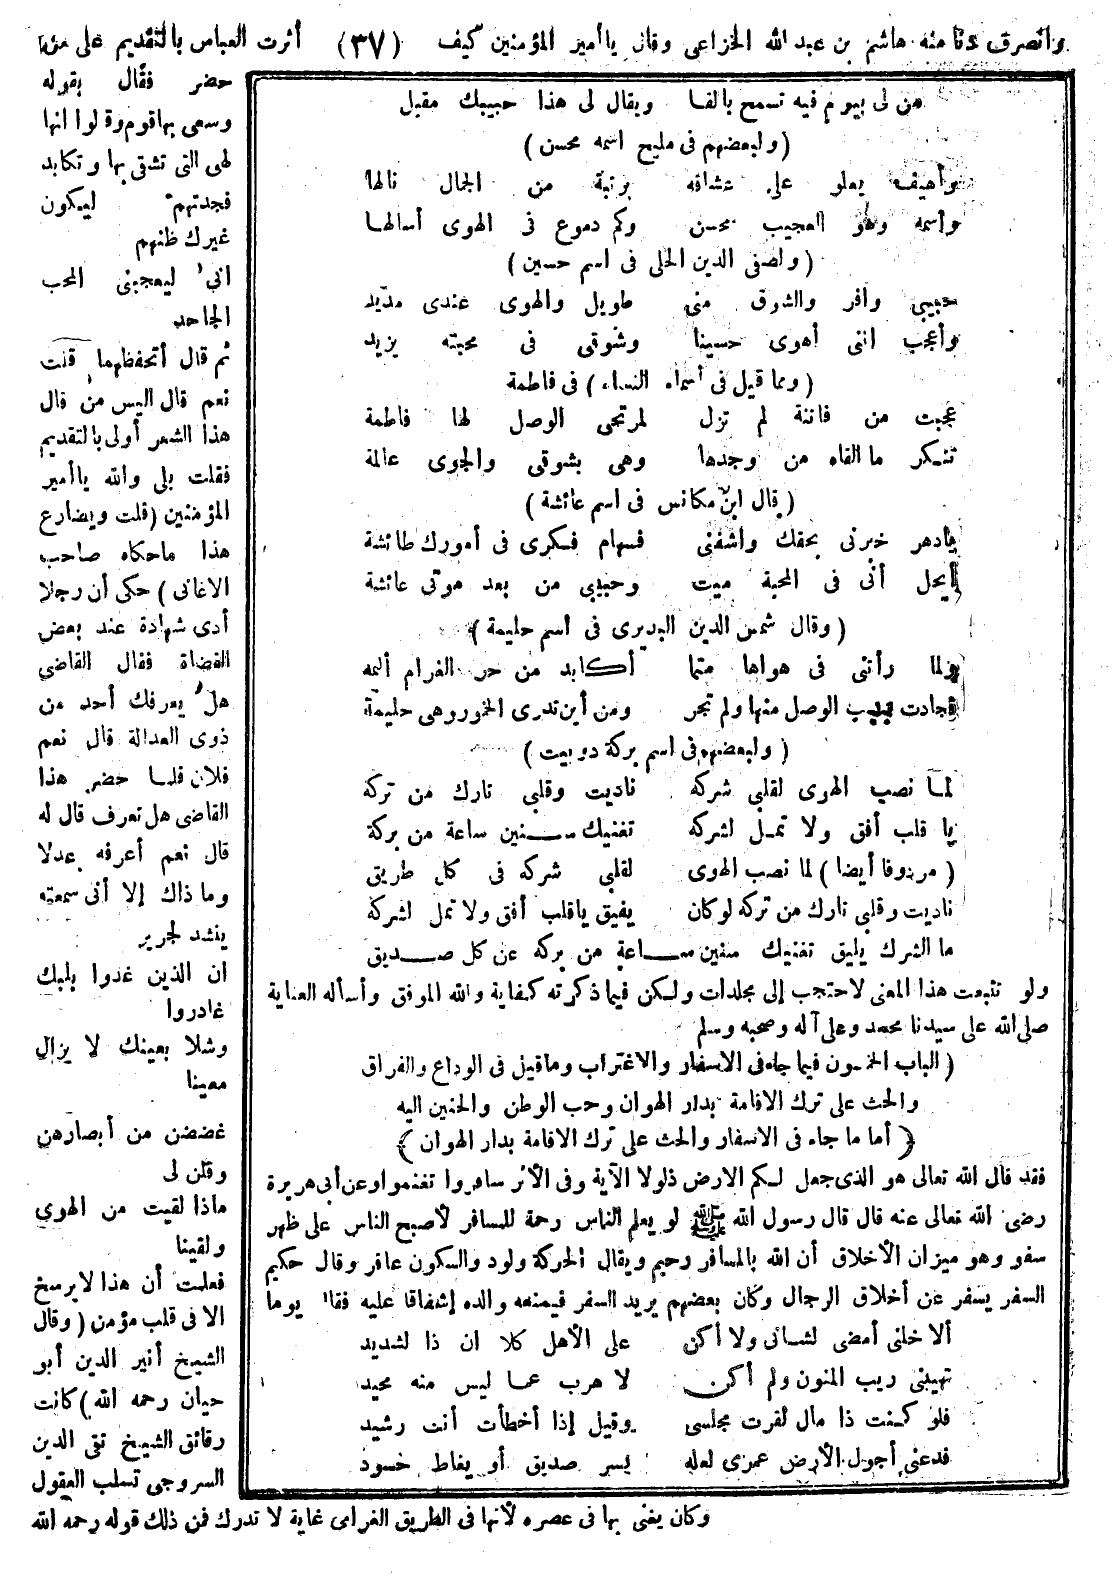 وانصرف دنا منه هاشم بن عبد الله الخزاعى وقال ياأمير المؤمنين كيف (٣٧) أثرت العباس بالتقديم على من
حضر فقال بقوله
وسعى بهاقوم وقالوا انها
لهى التى تشقى بها وتكابد
فجدتهم ليكون
غيرك ظنهم
انى ليعجبنى المحب
الجاحد
ثم قال أتحفظهما قلت
نعم قال اليس من قال
هذا الشعر أولى بالتقديم
فقلت بلى والله ياأمير
المؤمنين (قلت ويضارع
هذا ماحكاه صاحب
الاغانى) حكى أن رجلا
أدى شهادة عند بعض
القضاة فقال القاضى
هل يعرفك أحد من
ذوى العدالة قال نعم
فلان فلما حضر هذا
القاضى هل تعرف قال له
قال نعم أعرفه عدلا
وما ذاك إلا أنى سمعته
ينشد لجرير
ان الذين غدوا بلبك
غادروا
وشلا بعينك لا يزال
معينا
غضضن من أبصارهن
وقلن لى
ماذا لقيت من الهوى
ولقينا
فعلمت أن هذا لايرسخ
الا فى قلب مؤمن (وقال
الشيخ أثير الدين أبو
حيان رحمه الله) كانت
رقائق الشيخ تقى الدين
السروجى تسلب العقول
وكان يغنى بها فى عصره لأنها فى الطريق الغرامى غاية لا تدرك فمن ذلك قوله رحمه الله
من لى بيوم فيه تسمح باللقا ويقال لى هذا حبيبك مقبل
(ولبعضهم فى مليح اسمه محسن)
وأهيف يعلو على عشاقه برتبة من الجمال نالها
واسمه وهو العجيب محسن وكم دموع فى الهوى أسالها
(ولصفى الدين الحلى فى اسم حسين)
حبيبى وافر والشوق منى طويل والهوى عندى مديد
وأعجب اننى أهوى حسينا وشوقى فى محبته يزيد
(ومما قيل فى أسماء النساء) فى فاطمة
عجبت من فاتنة لم تزل لمرتجى الوصل لها فاطمة
تنكر ما القاه من وجدها وهى بشوقى والجوى عالمة
(قال ابن مكانس فى اسم عائشة)
يادهر خبرنى بحقك واشفنى فسهام فكرى فى أمورك طائشة
أيحل أنى فى المحبة ميت وحبيبى من بعد موتى عائشة
(وقال شمس الدين البديرى فى اسم حليمة)
ولما رأتنى فى هواها متيما أكابد من حر الغرام أليمه
فجادت بطيب الوصل منها ولم تجر ومن أين تدرى الجور وهى حليمة
(ولبعضهم فى اسم بركة دوبيت)
لما نصب الهوى لقلبى شركه ناديت وقلبى تارك من تركه
يا قلب أفق ولا تمل لشركه تغنيك سنين ساعة من بركة
(مردوفا أيضا) لما نصب الهوى لقلبى شركه فى كل طريق
ناديت وقلبى تارك من تركه لو كان يفيق ياقلب أفق ولا تمل لشركه
ما الشرك يليق تغنيك سنين ساعة من بركه عن كل صديق
ولو تتبعت هذا المعنى لاحتجب إلى مجلدات ولكن فيما ذكرته كفاية والله الموفق وأسأله العناية
صلى الله على سيدنا محمد وعلى آله وصحبه وسلم
(الباب الخمسون فيما جاء فى الاسفار والاغتراب وماقيل فى الوداع والفراق
والحث على ترك الاقامة بدار الهوان وحب الوطن والحنين اليه
(أما ما جاء فى الاسفار والحث على ترك الاقامة بدار الهوان)
فقد قال الله تعالى هو الذى جعل لكم الارض ذلولا الآية وفى الأثر سافروا تغنموا وعن أبى هريرة
رضى الله تعالى عنه قال قال رسول الله ﷺ لو يعلم الناس رحمة للمسافر لأصبح الناس على ظهر
سفر وهو ميزان الأخلاق أن الله بالمسافر رحيم ويقال الحركة ولود والسكون عاقر وقال حكيم
السفر يسفر عن أخلاق الرجال وكان بعضهم يريد السفر فيمنعه والده إشفاقا عليه فقال يوما
ألا خلنى أمضى لشانى ولا أكن على الأهل كلا ان ذا لشديد
تهيبنى ريب المنون ولم أكن لا هرب عما ليس منه محيد
فلو كنت ذا مال لقرت مجلسى وقيل إذا أخطأت أنت رشيد
فدعنى أجول الأرض عمرى لعله يسر صديق أو يغاظ حسود